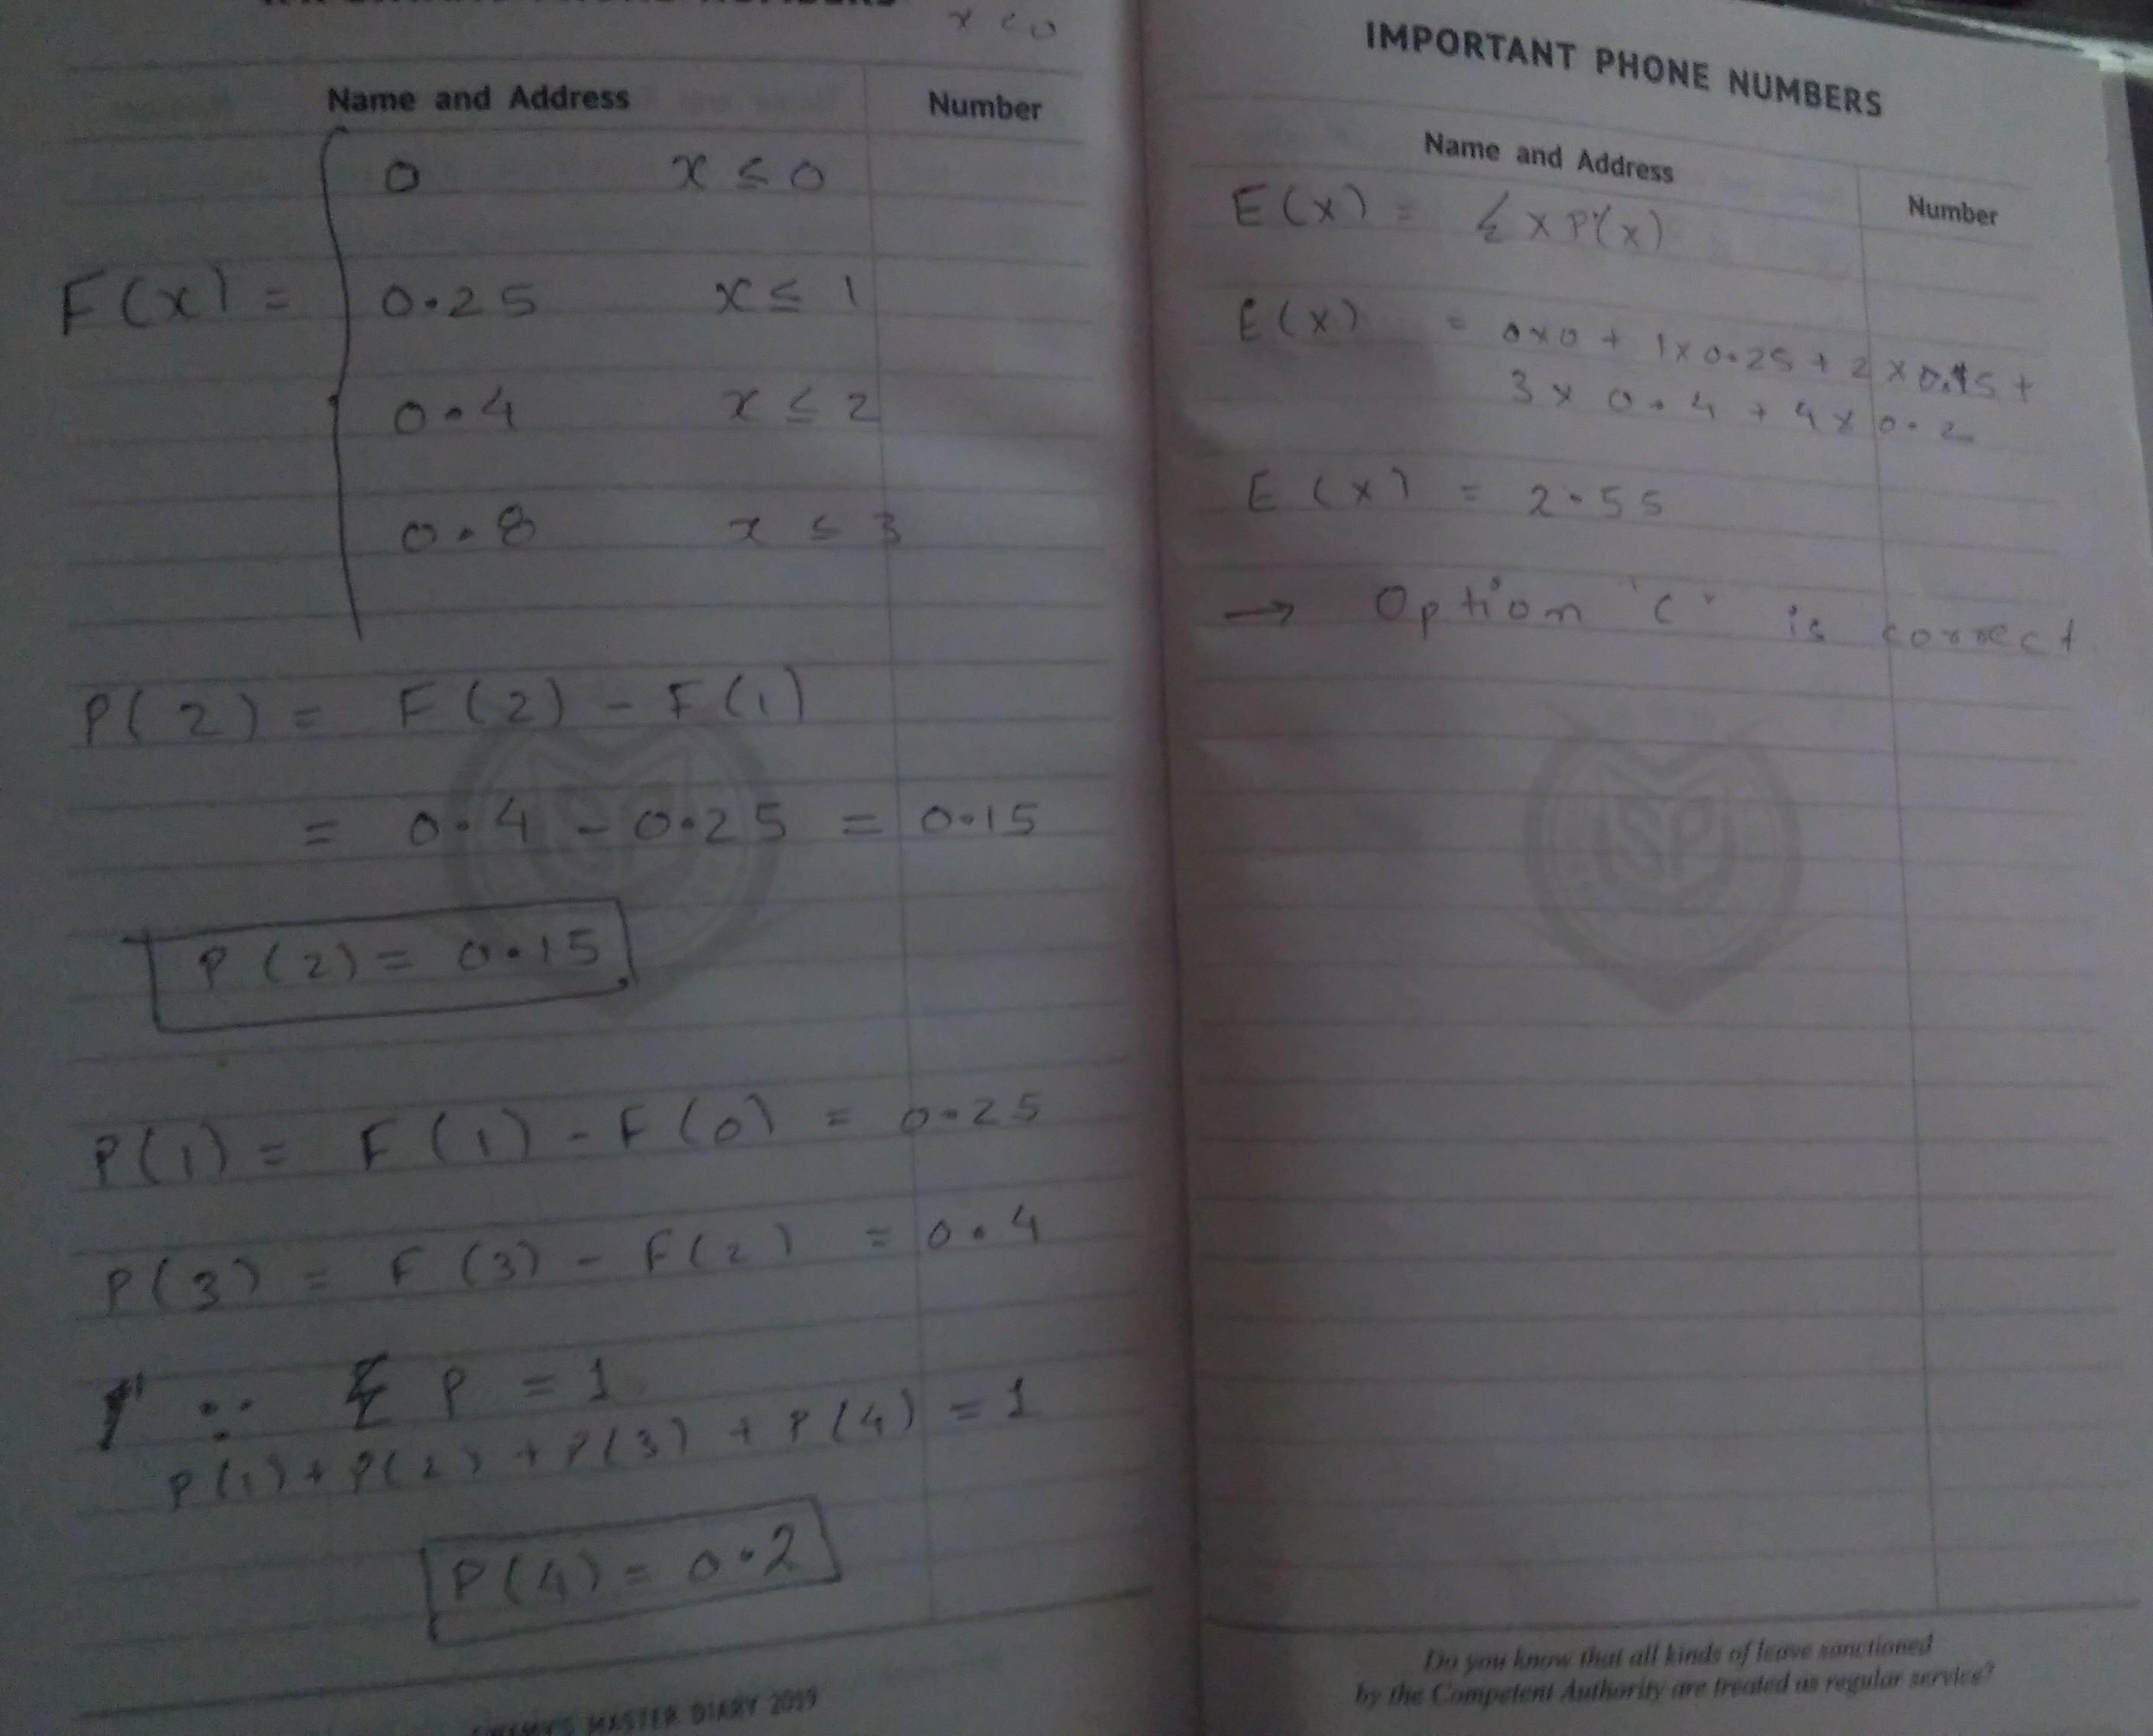 x < 0
Name and Address Number
0 x ≤ 0
F(x) = 0.25 x ≤ 1
0.4 x ≤ 2
0.8 x ≤ 3
P(2) = F(2) - F(1)
= 0.4 - 0.25 = 0.15
P(2) = 0.15
P(1) = F(1) - F(0) = 0.25
P(3) = F(3) - F(2) = 0.4
∵ Σ P = 1
P(1) + P(2) + P(3) + P(4) = 1
P(4) = 0.2
MASTER DIARY 2019
IMPORTANT PHONE NUMBERS
Name and Address Number
E(x) = Σ x P(x)
E(x) = 0x0 + 1x0.25 + 2x0.15 +
3x0.4 + 4x0.2
E(x) = 2.55
→ Option 'C' is correct
SP
Do you know that all kinds of leave sanctioned
by the Competent Authority are treated as regular service?